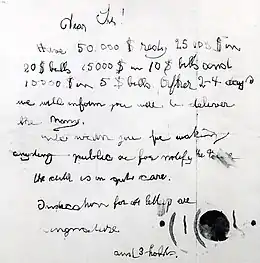 Dear Sir!
Have 50.000 $ redy 25 000 $ in
20 $ bills 15000 $ in 10 $ bills and
10000 $ in 5 $ bills. After 2-4 days
we will inform you were to deliver
the Mony.
We warn you for making
anyding public or for notify the Polise
the child is in gute care.
Indication for all letters are
singnature
and 3 holds.